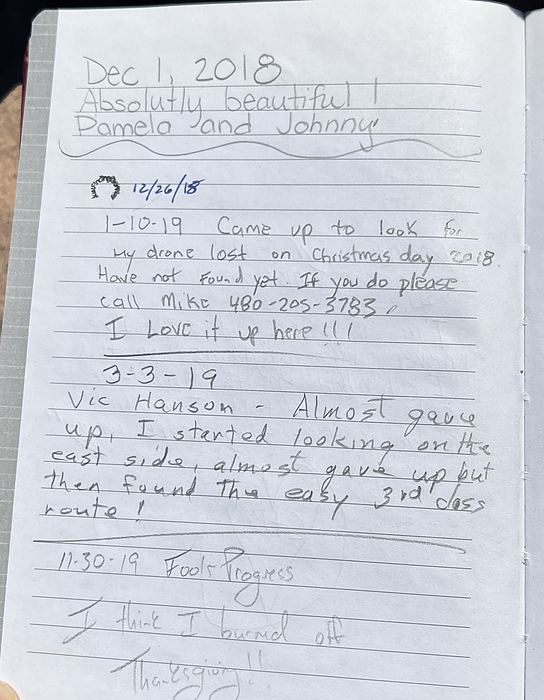 Dec 1, 2018
Absolutly beautiful!
Pamela and Johnny
12/26/18
1-10-19 Came up to look for
my drone lost on Christmas day 2018.
Have not found yet. If you do please
call Mike 480-205-3783.
I Love it up here!!!
3-3-19
Vic Hanson - Almost gave
up, I started looking on the
east side, almost gave up but
then found the easy 3rd class
route!
11-30-19 Fools Progress
I think I burned off
Thanksgiving!!